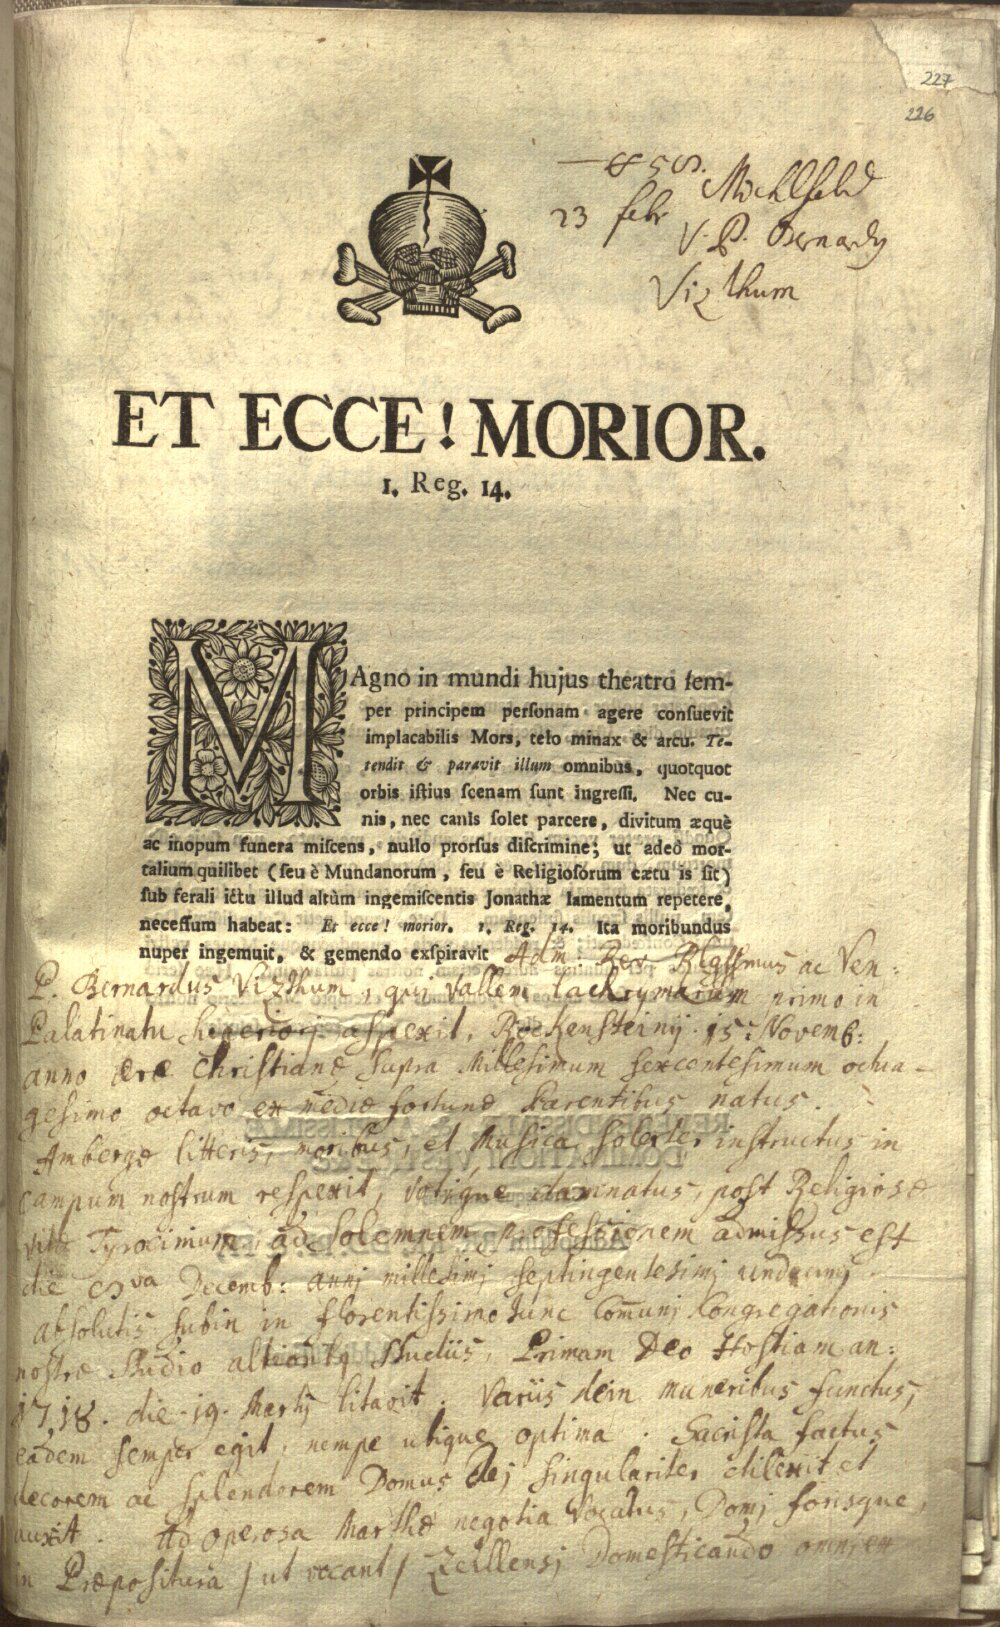 227
226
Michlfeld
23 febr
V. P. Bernardy
Vizthum
ET ECCE! MORIOR.
1. Reg. 14.
MAgno in mundi hujus theatro ſem-
per principem perſonam agere conſuevit
implacabilis Mors, telo minax & arcu. Te-
tendit & paravit illum omnibus, quotquot
orbis iſtius ſcenam ſunt ingreſſi. Nec cu-
nis, nec canis ſolet parcere, divitum æquè
ac inopum funera miſcens, nullo prorſus diſcrimine; ut adeò mor-
talium quilibet (ſeu è Mundanorum, ſeu è Religioſorum cætu is ſit)
ſub ferali ictu illud altùm ingemiſcentis Jonathæ lamentum repetere,
neceſſum habeat: Et ecce! morior. 1. Reg. 14. Ita moribundus
nuper ingemuit, & gemendo exſpiravit Adm: Rev. Rlgſsmus ac Ven:
P. Bernardus Vizthum, qui Vallem lachrymarum primo in
Palatinatu superiorj aspexit, Rockensteinij 15. Novemb:
anno æræ Christianæ supra Millesimum sexcentesimum octua-
gesimo octavo ex mediæ fortunæ Parentibus natus.
Ambergæ litteris, moribus, et Musica solerter instructus in
campum nostrum respexit, votique damnatus, post Religiosæ
vitæ Tyrocinium, ad solemnem professionem admissus est
die Decemb: annj millesimj septingentesimj undecimj
absolutis subin in florentissimo tunc Com̄unj Congregationis
nostræ Studio altioribq Studiis, Primam Deo Hostiam an:
1718. die 19. Martij litavit. Variis dein muneribus functus,
eadem semper egit, nempe utique optima. Sacrista factus
decorem ac splendorem Domus Dej singulariter dilexit et
auxit. Ad operosa Marthæ negotia Vocatus, Domj forisque,
in Præpositura / ut vocant / Zellensj Domesticando omnj ex